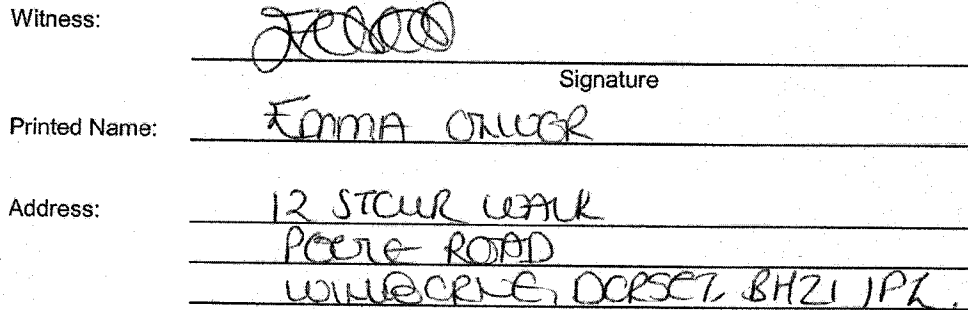 Witness:
Signature
Printed Name: EMMA OLIVER
Address: 12 STOUR WALK
POOLE ROAD
WIMBORNE, DORSET, BH21